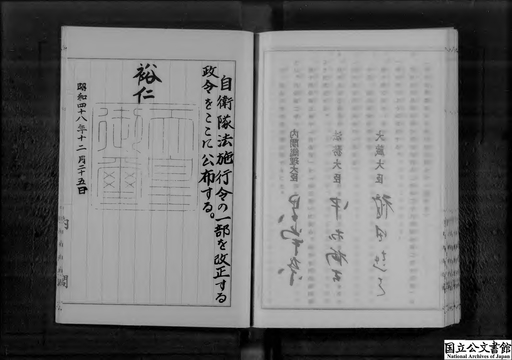 自衛隊法施行令の一部を改正する
政令をここに公布する。
裕仁
天皇
御璽
昭和四十八年十二月二十五日
内閣
大蔵大臣
法務大臣
内閣総理大臣
国立公文書館
National Archives of Japan